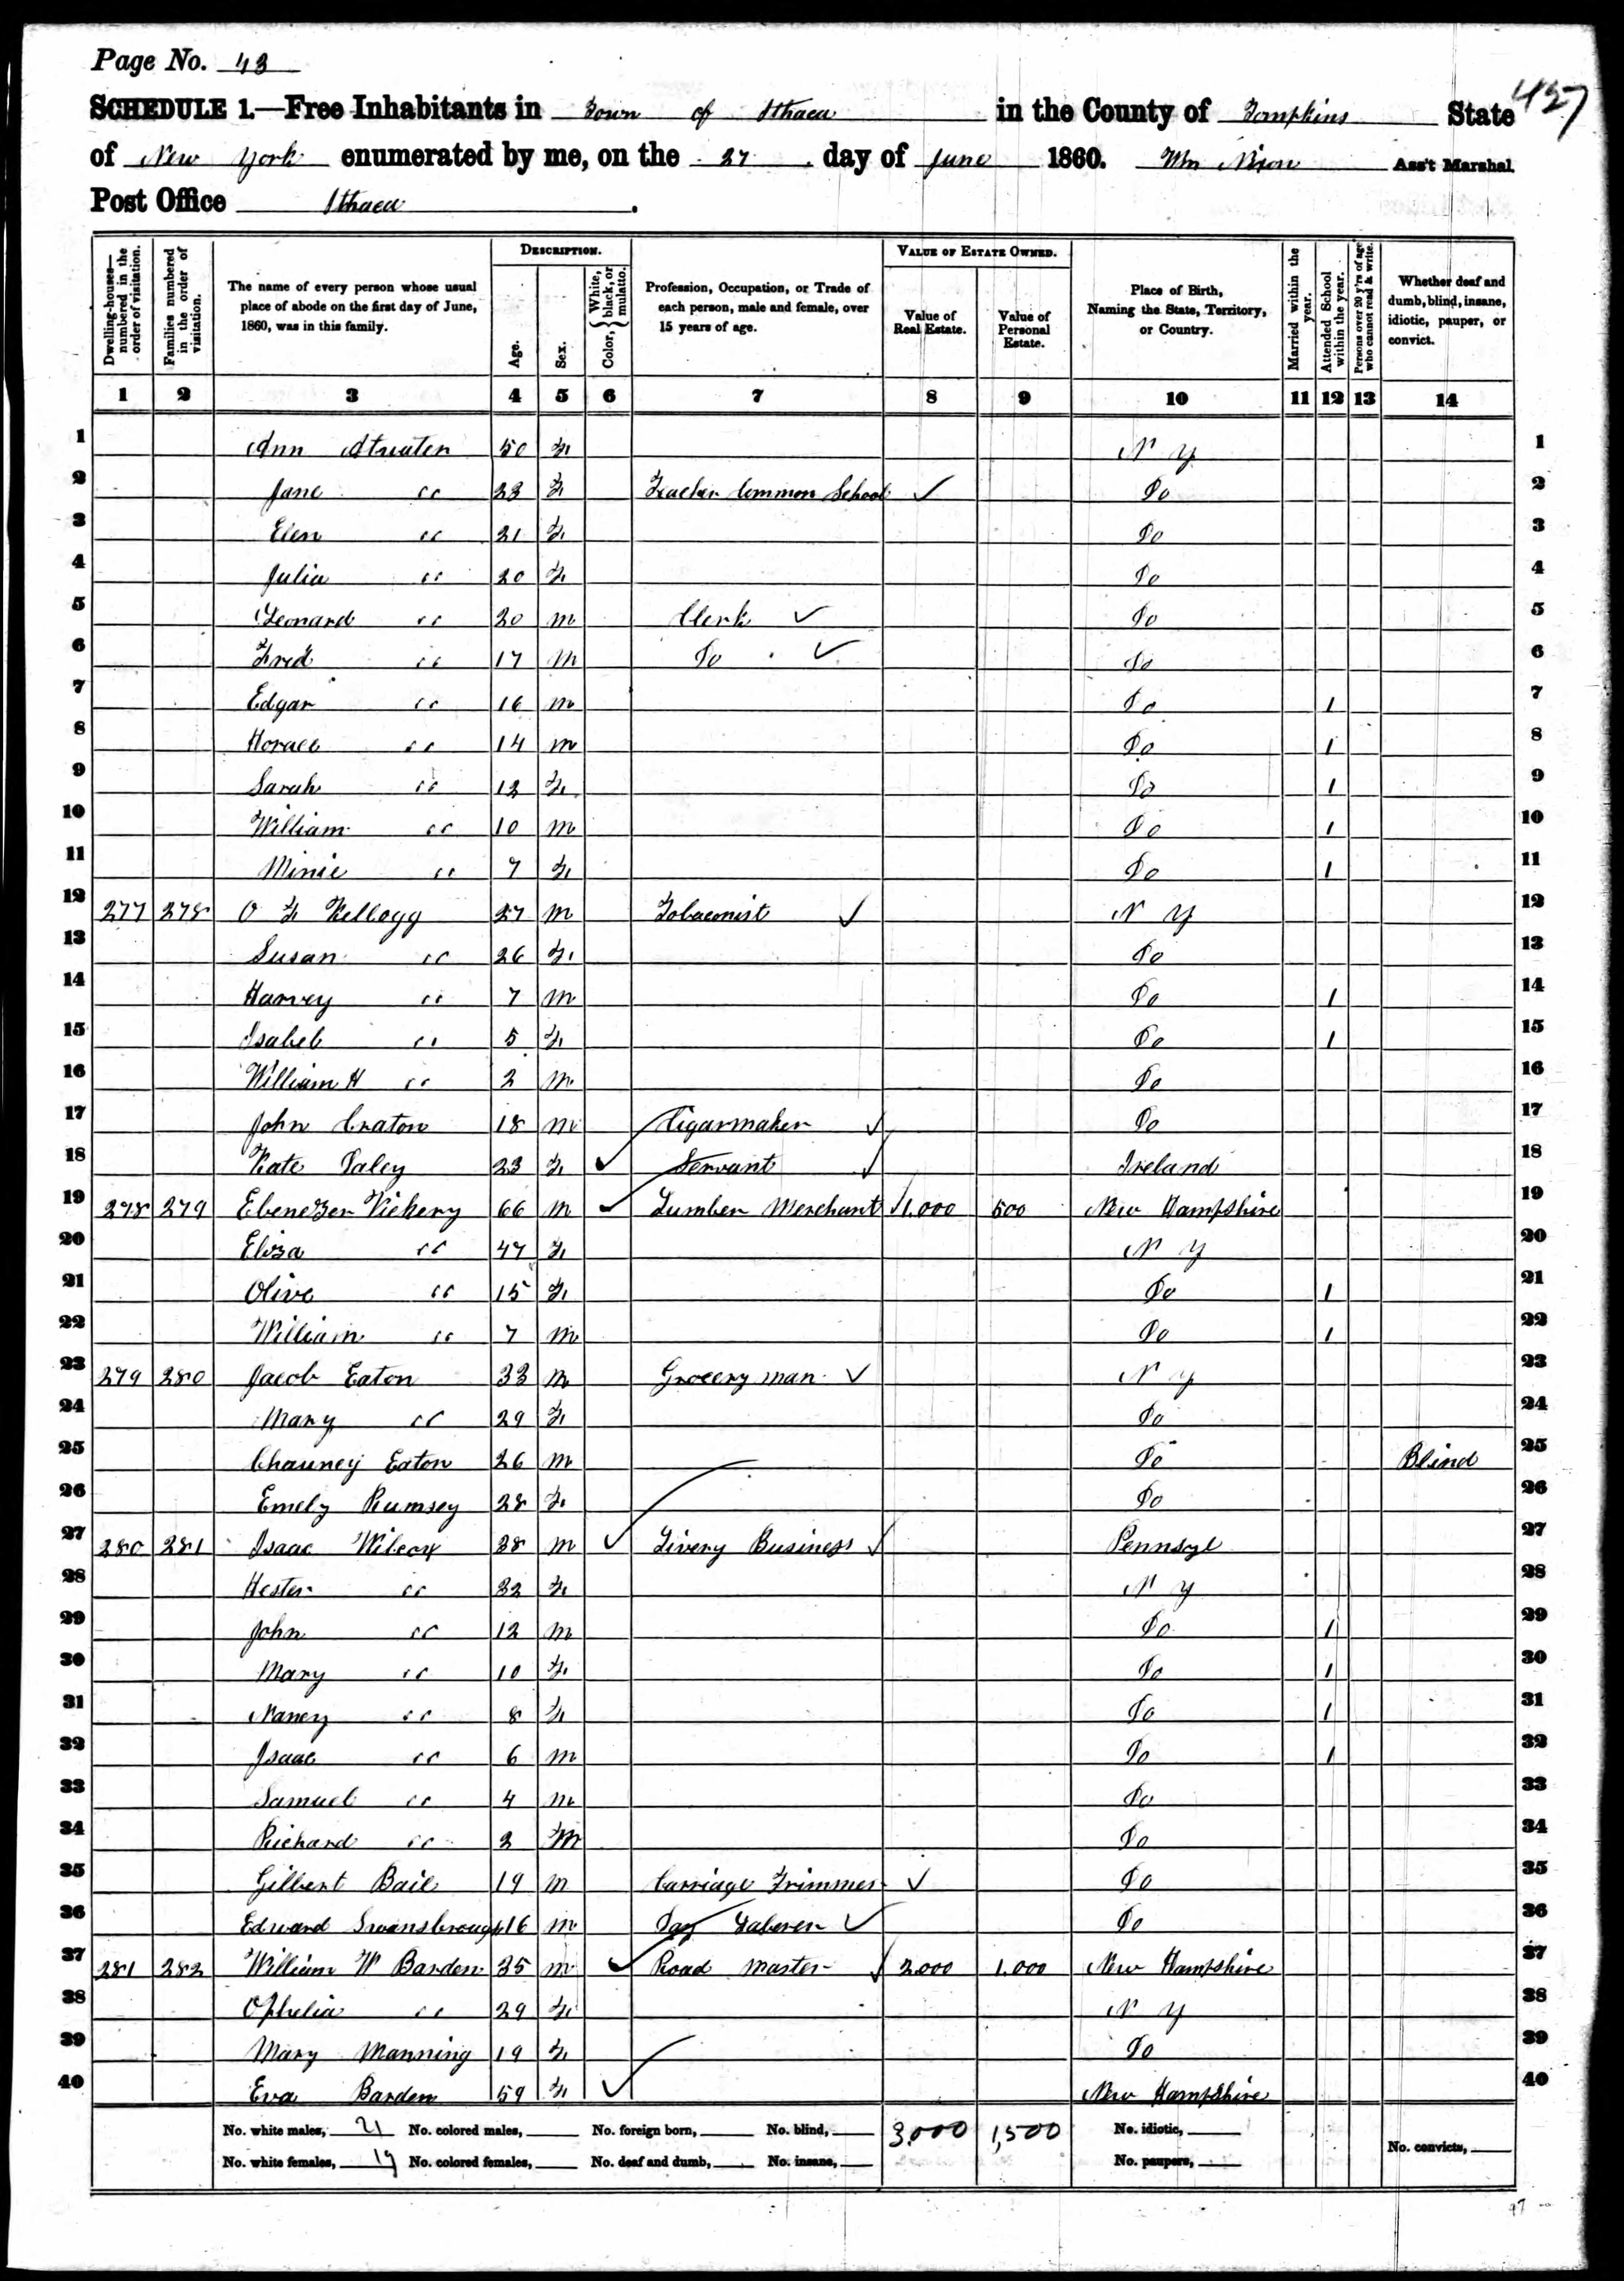 Page No. 43
427
SCHEDULE 1.—Free Inhabitants in Town of Ithaca in the County of Tompkins State
of New York enumerated by me, on the 27 day of June 1860. Wm Nixon Ass't Marshal.
Post Office Ithaca.
Dwelling-houses—numbered in the order of visitation.
Families numbered in the order of visitation.
The name of every person whose usual place of abode on the first day of June, 1860, was in this family.
DESCRIPTION.
Age.
Sex.
Color, { White, black, or mulatto.
Profession, Occupation, or Trade of each person, male and female, over 15 years of age.
VALUE OF ESTATE OWNED.
Value of Real Estate.
Value of Personal Estate.
Place of Birth, Naming the State, Territory, or Country.
Married within the year.
Attended School within the year.
Persons over 20 y'rs of age who cannot read & write.
Whether deaf and dumb, blind, insane, idiotic, pauper, or convict.
1 2 3 4 5 6 7 8 9 10 11 12 13 14
1 Ann Atwater 50 F N Y 1
2 Jane " 23 F Teacher Common School ✓ Do 2
3 Elen " 21 F Do 3
4 Julia " 20 F Do 4
5 Leonard " 20 m Clerk ✓ Do 5
6 Fred " 17 m Do ✓ Do 6
7 Edgar " 16 m Do 1 7
8 Horace " 14 m Do 1 8
9 Sarah " 12 F Do 1 9
10 William " 10 m Do 1 10
11 Minie " 7 F Do 1 11
12 277 278 O F Kellogg 27 m Tobaconist ✓ N Y 12
13 Susan " 26 F Do 13
14 Harvey " 7 m Do 1 14
15 Isabel " 5 F Do 1 15
16 William H " 2 m Do 16
17 John Craton 18 m Cigarmaker ✓ Do 17
18 Kate Daley 23 F ✓ Servant ✓ Ireland 18
19 278 279 Ebenezer Vickery 66 m ✓ Lumber Merchant ✓ 1.000 500 New Hampshire 19
20 Eliza " 47 F N Y 20
21 Olive " 15 F Do 1 21
22 William " 7 m Do 1 22
23 279 280 Jacob Eaton 33 m Grocery man ✓ N Y 23
24 Mary " 29 F Do 24
25 Chauncy Eaton 26 m Do Blind 25
26 Emely Rumsey 28 F Do 26
27 280 281 Isaac Wilcox 38 m ✓ Livery Business ✓ Pennsyl 27
28 Hester " 32 F N Y 28
29 John " 12 m Do 1 29
30 Mary " 10 F Do 1 30
31 Nancy " 8 F Do 1 31
32 Isaac " 6 m Do 1 32
33 Samuel " 4 m Do 33
34 Richard " 2 m Do 34
35 Gilbert Bail 19 m Carriage Trimmer ✓ Do 35
36 Edward Swansbrough 16 m Day Laborer ✓ Do 36
37 281 282 William W Barden 35 m ✓ Road Master ✓ 2.000 1.000 New Hampshire 37
38 Ophelia " 29 F N Y 38
39 Mary Manning 19 F Do 39
40 Eva Barden 59 F ✓ New Hampshire 40
No. white males, 21 No. colored males, No. foreign born, No. blind, 3.000 1,500 No. idiotic,
No. white females, 19 No. colored females, No. deaf and dumb, No. insane, No. paupers, No. convicts,
97